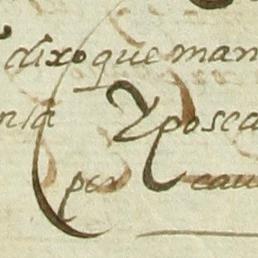 dixo que man
nsa Yposca
por cau